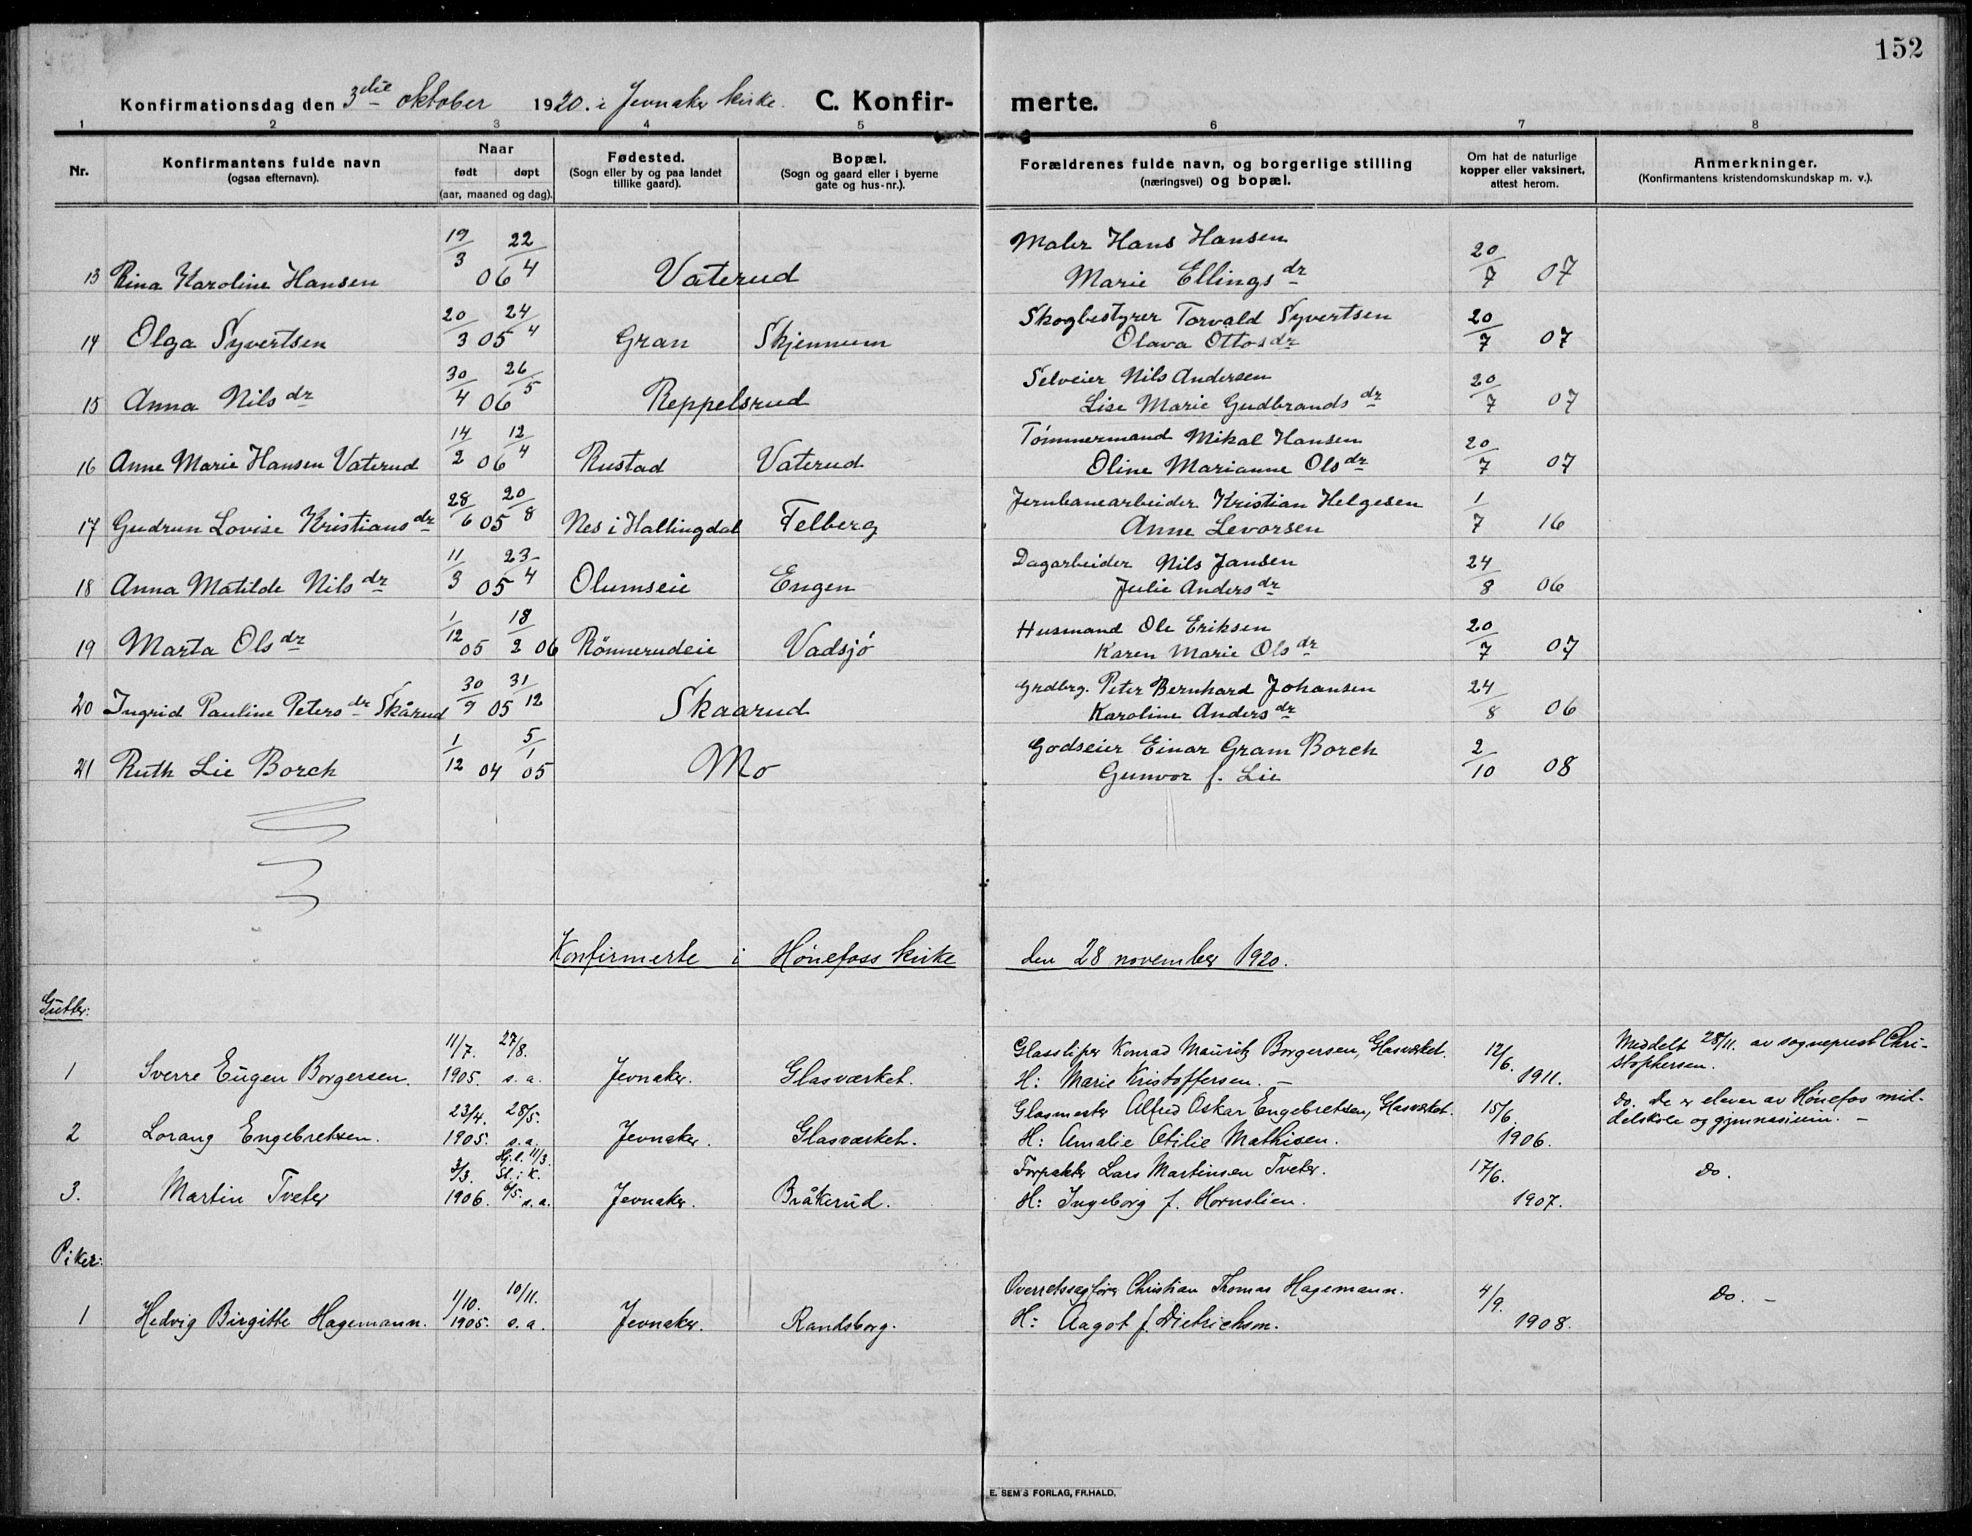 152
Konfirmationsdag den 3die oktober 1920. i Jevnaker kirke. C. Konfir- merte.
1 2 3 4 5 6 7 8
Nr. Konfirmantens fulde navn (ogsaa efternavn). Naar født døpt (aar, maaned og dag). Fødested. (Sogn eller by og paa landet tillike gaard). Bopæl. (Sogn og gaard eller i byerne gate og hus-nr.). Forældrenes fulde navn, og borgerlige stilling (næringsvei) og bopæl. Om hat de naturlige kopper eller vaksinert, attest herom. Anmerkninger. (Konfirmantens kristendomskundskap m. v.).
19/3 22/4 Maler Hans Hansen 20/7
13 Rina Karoline Hansen 06 Vaterud Marie Ellingsdr 07
20/3 24/4 Skogbestyrer Torvald Syvertsen 20/7
14 Olga Syvertsen 05 Gran Skjennum Olava Ottosdr 07
30/4 26/5 Selveier Nils Andersen 20/7
15 Anna Nilsdr 06 Reppelsrud Lise Marie Gudbrandsdr 07
14/2 12/4 Tømmermand Mikal Hansen 20/7
16 Anne Marie Hansen Vaterud 06 Rustad Vaterud Oline Marianne Olsdr 07
28/6 20/8 Jernbanearbeider Kristian Helgesen 1/7
17 Gudrun Lovise Kristiansdr 05 Nes i Hallingdal Felberg Anne Levorsen 16
11/3 23/4 Dagarbeider Nils Jansen 24/8
18 Anna Matilde Nilsdr 05 Olumseie Engen Julie Andersdr 06
1/12 18/2 Husmand Ole Eriksen 20/7
19 Marta Olsdr 05 06 Rønnerudeie Vadsjø Karen Marie Olsdr 07
30/9 31/12 Grdbrg. Peter Bernhard Johansen 24/8
20 Ingrid Pauline Petersdr Skårud 05 Skaarud Karoline Andersdr 06
1/12 5/1 Godseier Einar Gram Borch 2/10
21 Ruth Lie Borch 04 05 Mo Gunvor f. Lie 08
Konfirmerte i Hønefoss kirke den 28 november 1920.
Gutter:
11/7. 27/8. Glassliper Konrad Mauritz Borgersen, Glasværket. 12/6. Meddelt 28/11. av sogneprest Chri-
1 Sverre Eugen Borgersen. 1905. s. a. Jevnaker. Glasværket. H: Marie Kristoffersen. – 1911. stophersen.
23/4. 28/5. Glasmester Alfred Oskar Engebretsen, Glasværket. 15/6. Do. De er elever av Hønefos mid-
2 Lorang Engebretsen. 1905. s. a. Jevnaker. Glasværket. H: Amalie Otilie Mathisen. 1906. delskole og gymnasium. –
3/3. Hj.d. 11/3. St. i K. Forpakter Lars Martinsen Tveter. 17/6. Do.
3. Martin Tveter 1906. 6/5 s. a. Jevnaker. Bråkerud. H: Ingeborg f. Hornslien. 1907.
Piker:
1/10. 10/11. Overretssagfører Christian Thomas Hagemann. 4/9. Do. –
1 Hedvig Birgitte Hagemann. 1905. s. a. Jevnaker. Randsborg. H: Aagot f. Dietrichson. 1908.
E. SEM'S FORLAG, FR.HALD.